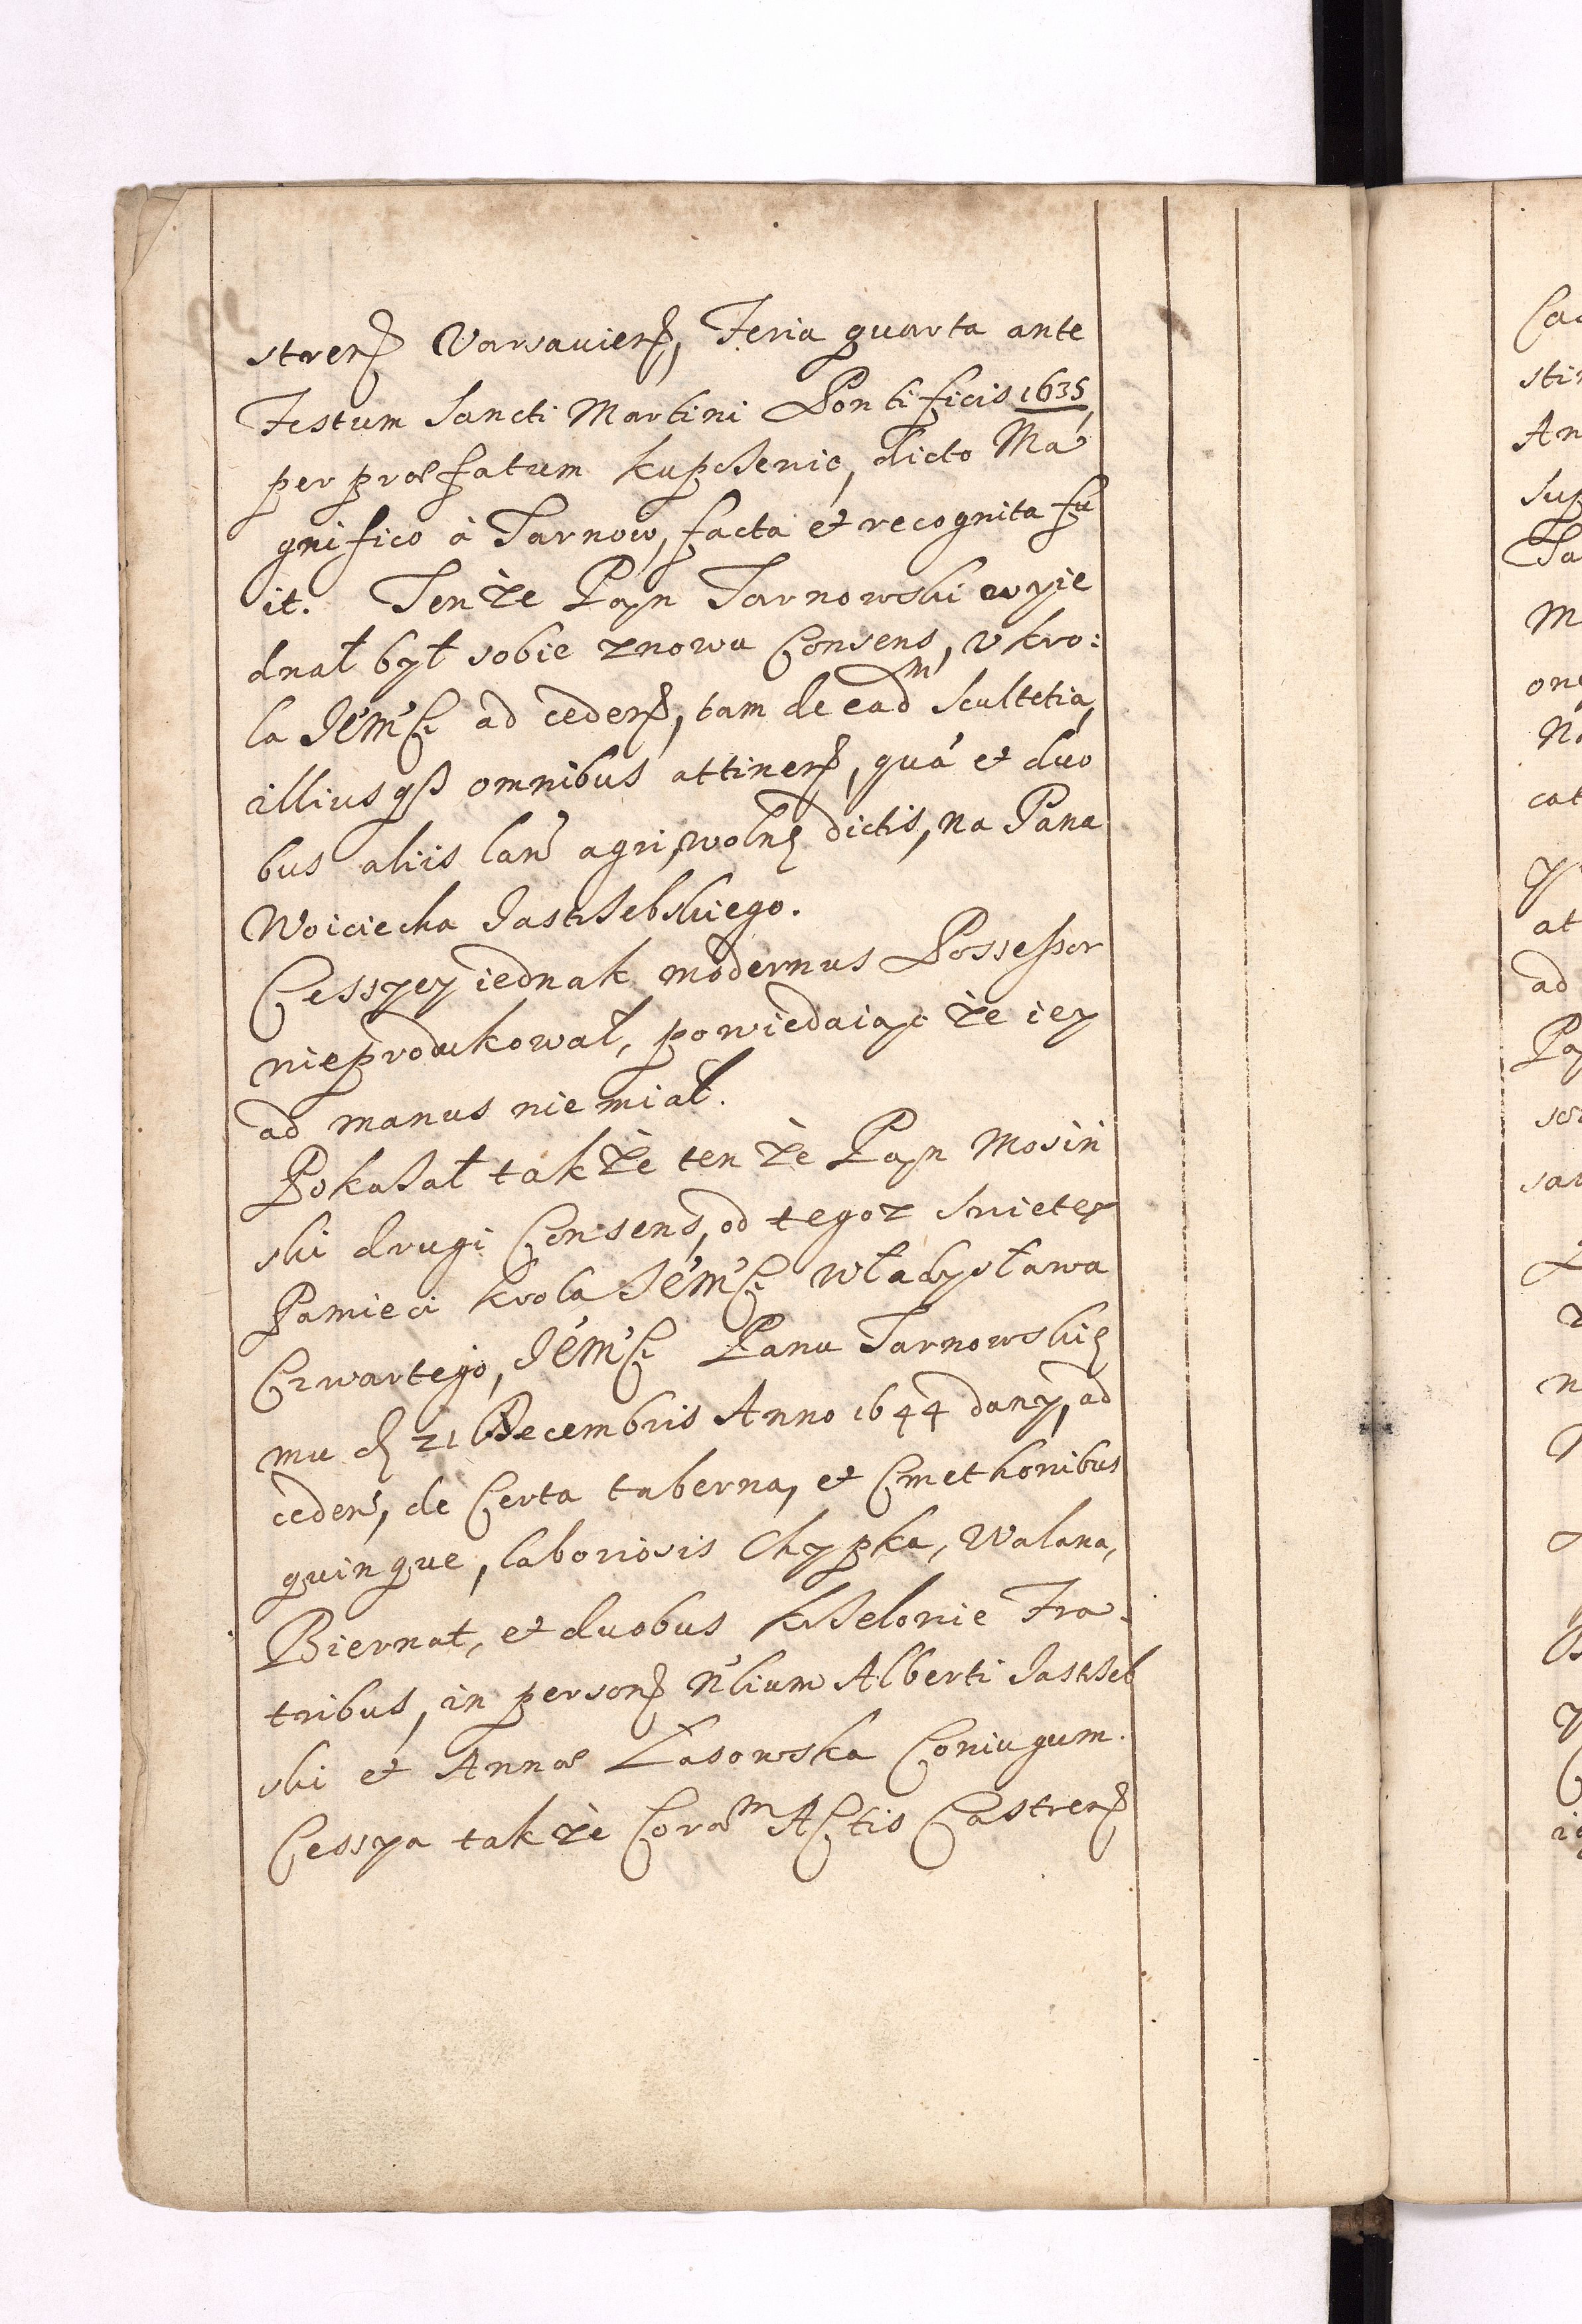 strens Varsaviens, Feria quarta ante
Festum Sancti Martini Pontificis 1635,
per præfatum kupssenic, dicto Ma
gnifico à Tarnow, facta et recognita fu
it. Tenże Pan Tarnowski wyie
dnał był sobie znowu Consens, v kro:
la Jé°M°Ci ad cedens, tam de ead̃m Scultetia,
illiusqß omnibus attinens, quá et duo
bus aliis lan̓ agri, wolne dictis, na Pana
Woiciecha Jastssebskiego.
Cessyey iednak modernus Possessor
nieprodukował, powiedaiąc że iey
ad manus niemiał.
Pokasał także tenże Pan Mosin
ski drugi Consens, od tegoz Swietey
Pamieci krola Jé°M°Ci Władysława
Czwartego, Jé°M°Ci Panu Tarnowskie
mu de 21 Decembris Anno 1644 dany, ad
cedens, de Certa taberna, et Cmethonibus
quinque, laboriosis Chypka, Walana,
Biernat, et duobus ksselonie Fra-
tribus, in persons N̓lium Alberti Jastsseb
ski et Annæ Łasowska Coniugum.
Cessya także Corãm ACtis Castrens